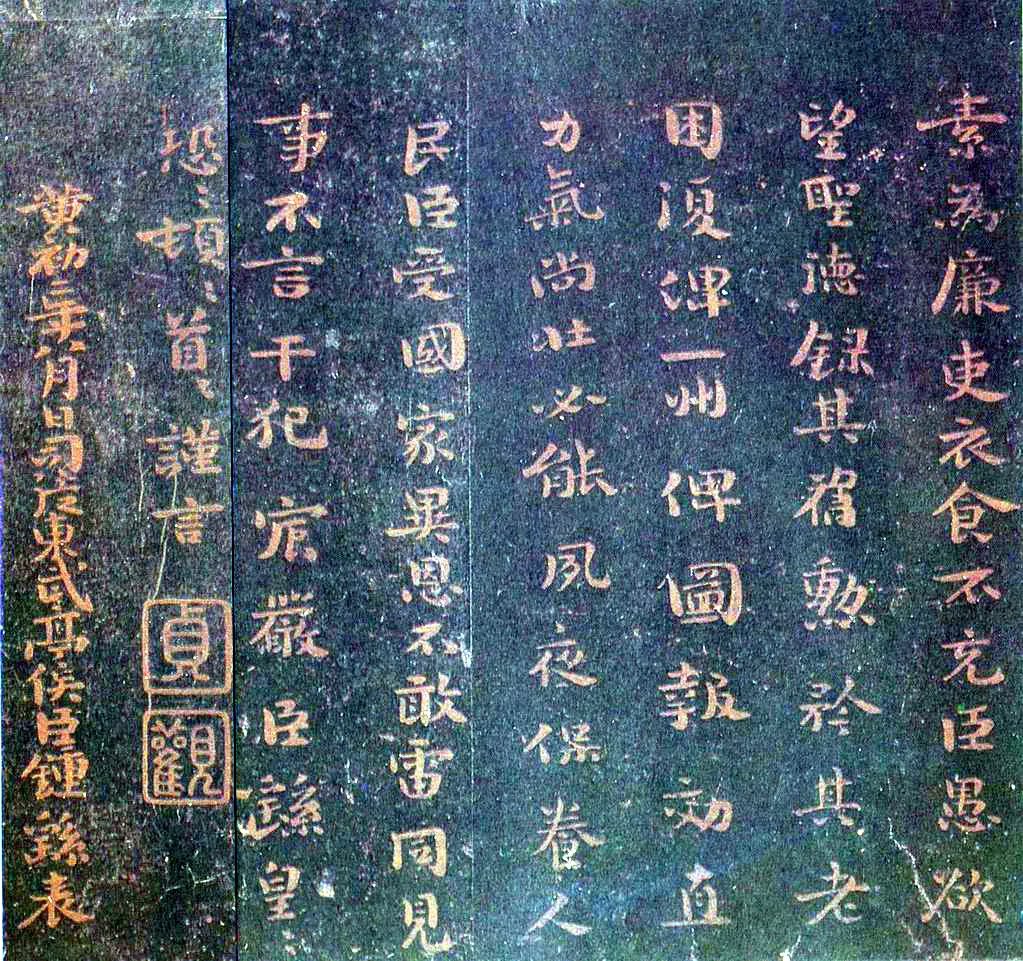 素為廉吏衣食不充臣愚欲
望聖德録其舊勲矜其老
困復俾一州俾圖報効直
力氣尚壯必能夙夜保養人
民臣受國家異恩不敢雷同見
事不言干犯宸嚴臣繇皇〻
恐〻頓〻首〻謹言
貞觀
黄初二年八月日司徒東武亭侯臣鍾繇表